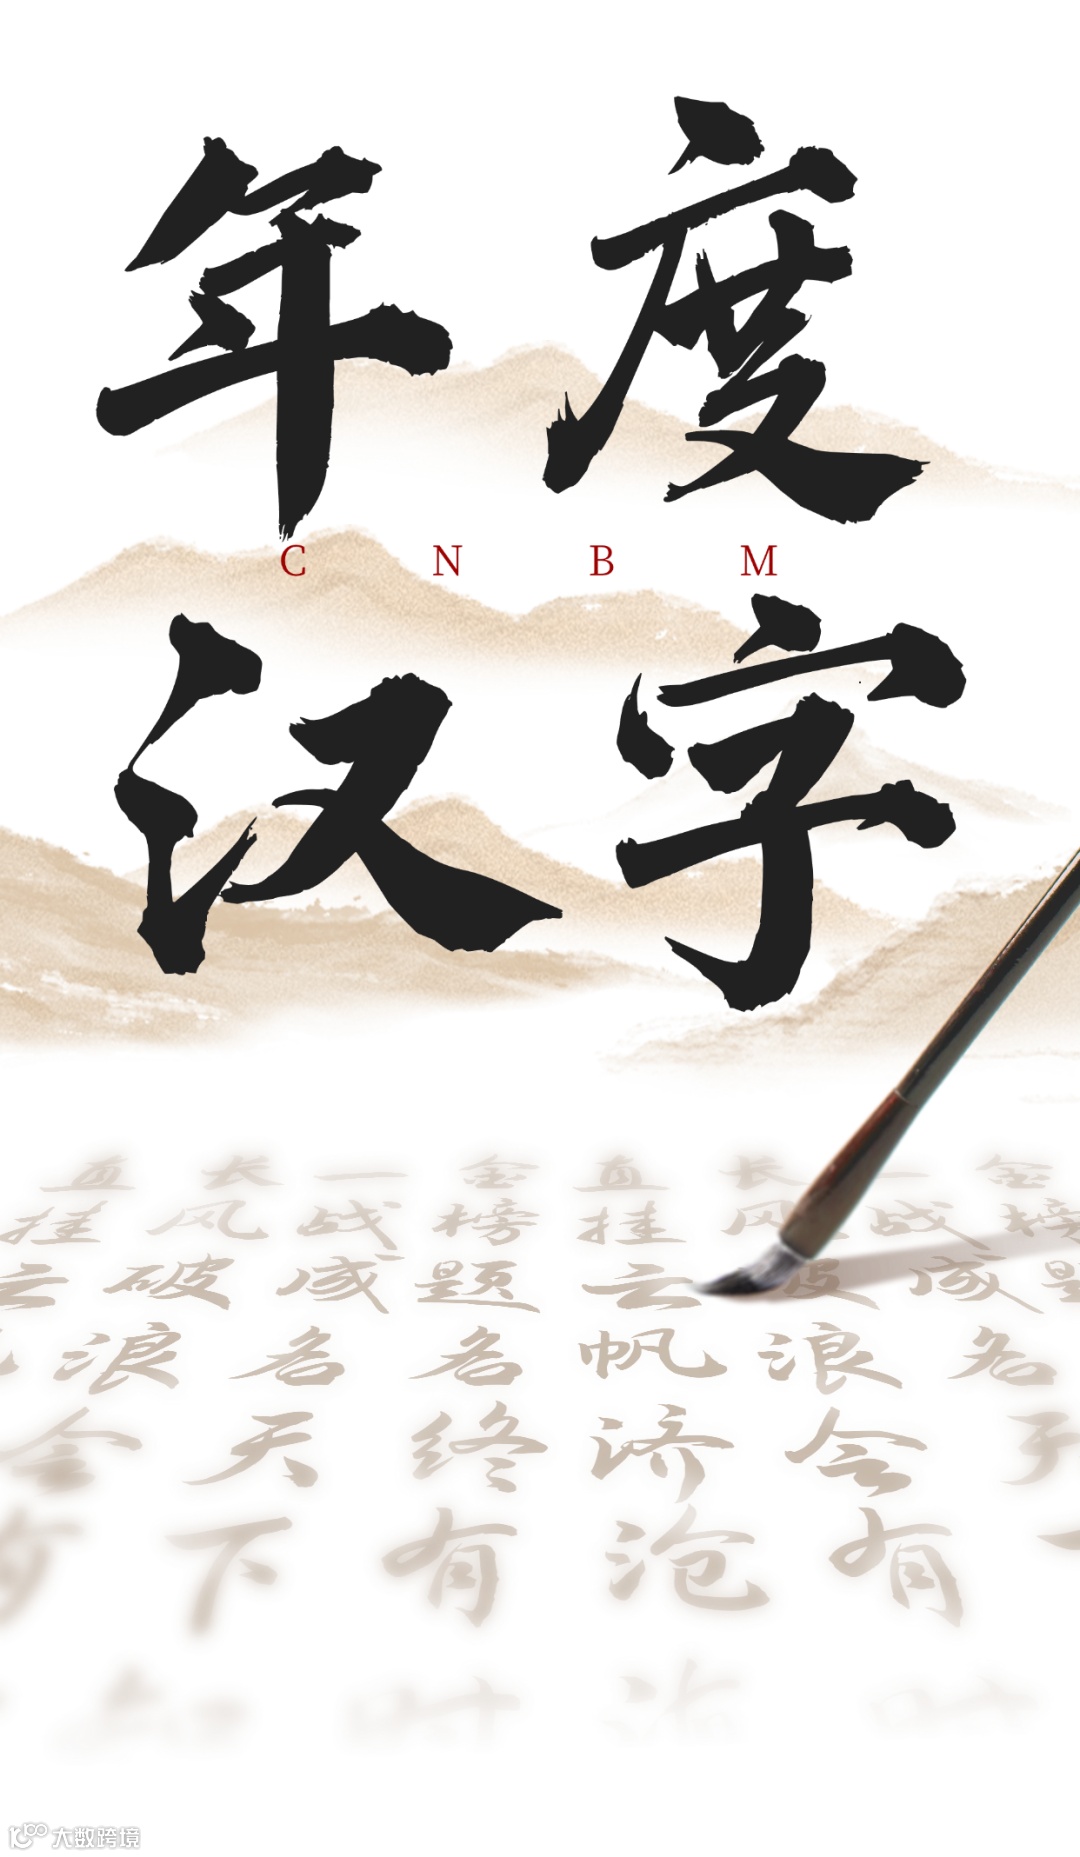 年度
CNBM
汉字
直 长 一 金 直 长 一 金
挂 风 战 榜 挂 风 战 榜
云 破 成 题 云 破 成 题
浪 名 名 帆 浪 名
会 天 终 济 会
下 有 沧 有
知 时 海 时
大数跨境